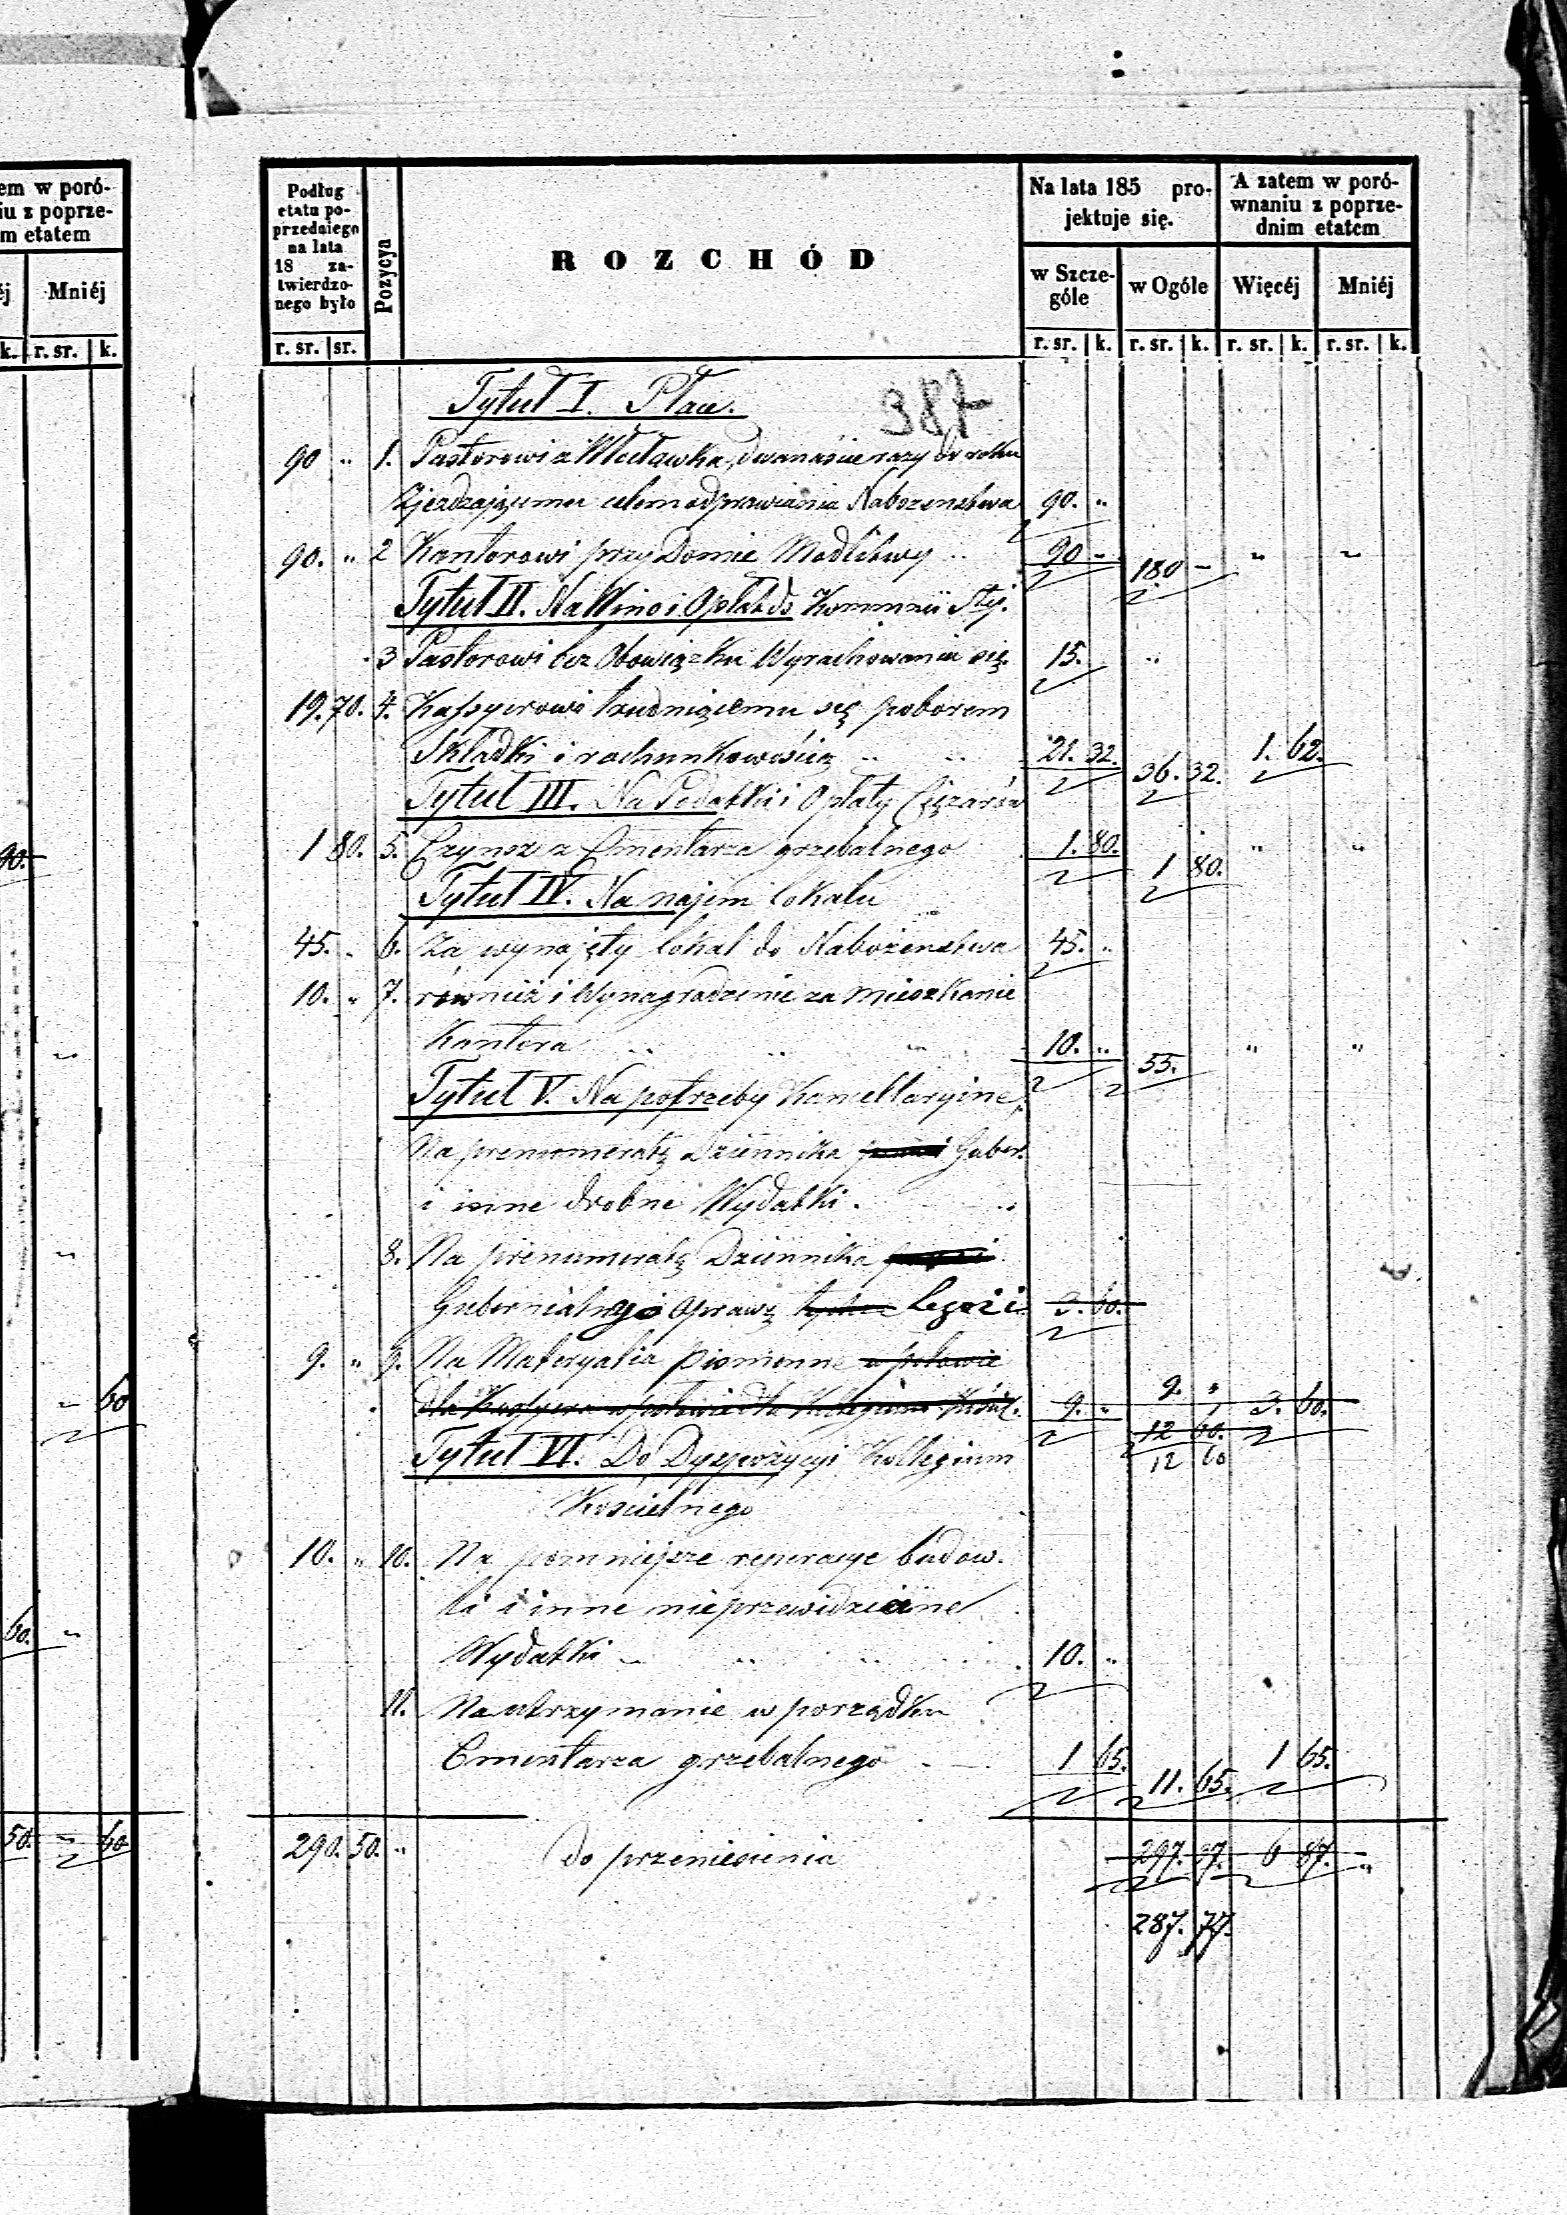 em w poró-
iu z poprze-
m etatem
ej
Mniéj
k.
r. sr.
k.
90.
„
„
„ 60
60. „
50. „ 60
Podług
etatu po-
przedniego
na lata
18 za-
twierdzo-
nego było
Pozycya
ROZCHÓD
Na lata 185 pro-
jektuje się.
A zatem w poró-
wnaniu z poprze-
dnim etatem
w Szcze-
góle
w Ogóle
Więcéj
Mniéj
r. sr. sr.
r. sr. k. r. sr. k. r. sr. k. r. sr. k.
Tytuł I. Płace.
387
90 „ 1. Pastorowi z Włocławka, dwanaście razy do roku
Zjezdzającemu celem odprawiania Nabozenstwa 90. „
90. „ 2 Kantorowi przy Domie Modlitwy .. 90 „ 180 – „ „
Tytuł II. Na Wino i Opłat do Kommunii Stej.
3 Pastorowi bez Obowiązku Wyrachowania się. 15. „
19. 70. 4. Kassyerowi trudniącemu się poborem
Składki i rachunkowością .. .. 21. 32. 36. 32. 1. 62.
Tytuł III. Na Podatki i Opłaty Cięzarów
1 80. 5. Czynsz z Cmentarza grzebalnego 1. 80. 1 80. „ „
Tytuł IV. Na najem lokalu
45. „ 6. Za wynajęty lokal do Nabożeństwa 45. „
10. „ 7. również i Wynagrodzenie za mieszkanie
Kantora .. .. „ 10. „ 55. „ „
Tytuł V. Na potrzeby Kancellaryine,
Na prenumeratę Dziennika Guber.
i inne drobne Wydatki.
8. Na prenumeratę Dziennika
Gubernialnego oprawę 3. 60.
9. „ 9. Na Materyalia piśmienne w połowie
dla Kassyera w połowie dla Kollegium Kościel. 9. „ 9. „ 3. 60.
12 60.
12 60
Tytuł VI. Do Dyspozycyi Kollegium
Koscielnego
10. „ 10. Na pomniejsze reperacye budow.
li i inne nieprzewidziane
Wydatki .. .. 10. „
11. Na utrzymanie w porządku
Cmentarza grzebalnego 1 65. 11. 65. 1 65.
290. 50. „ do przeniesienia 297. 37. 6 87. „
287. 77.